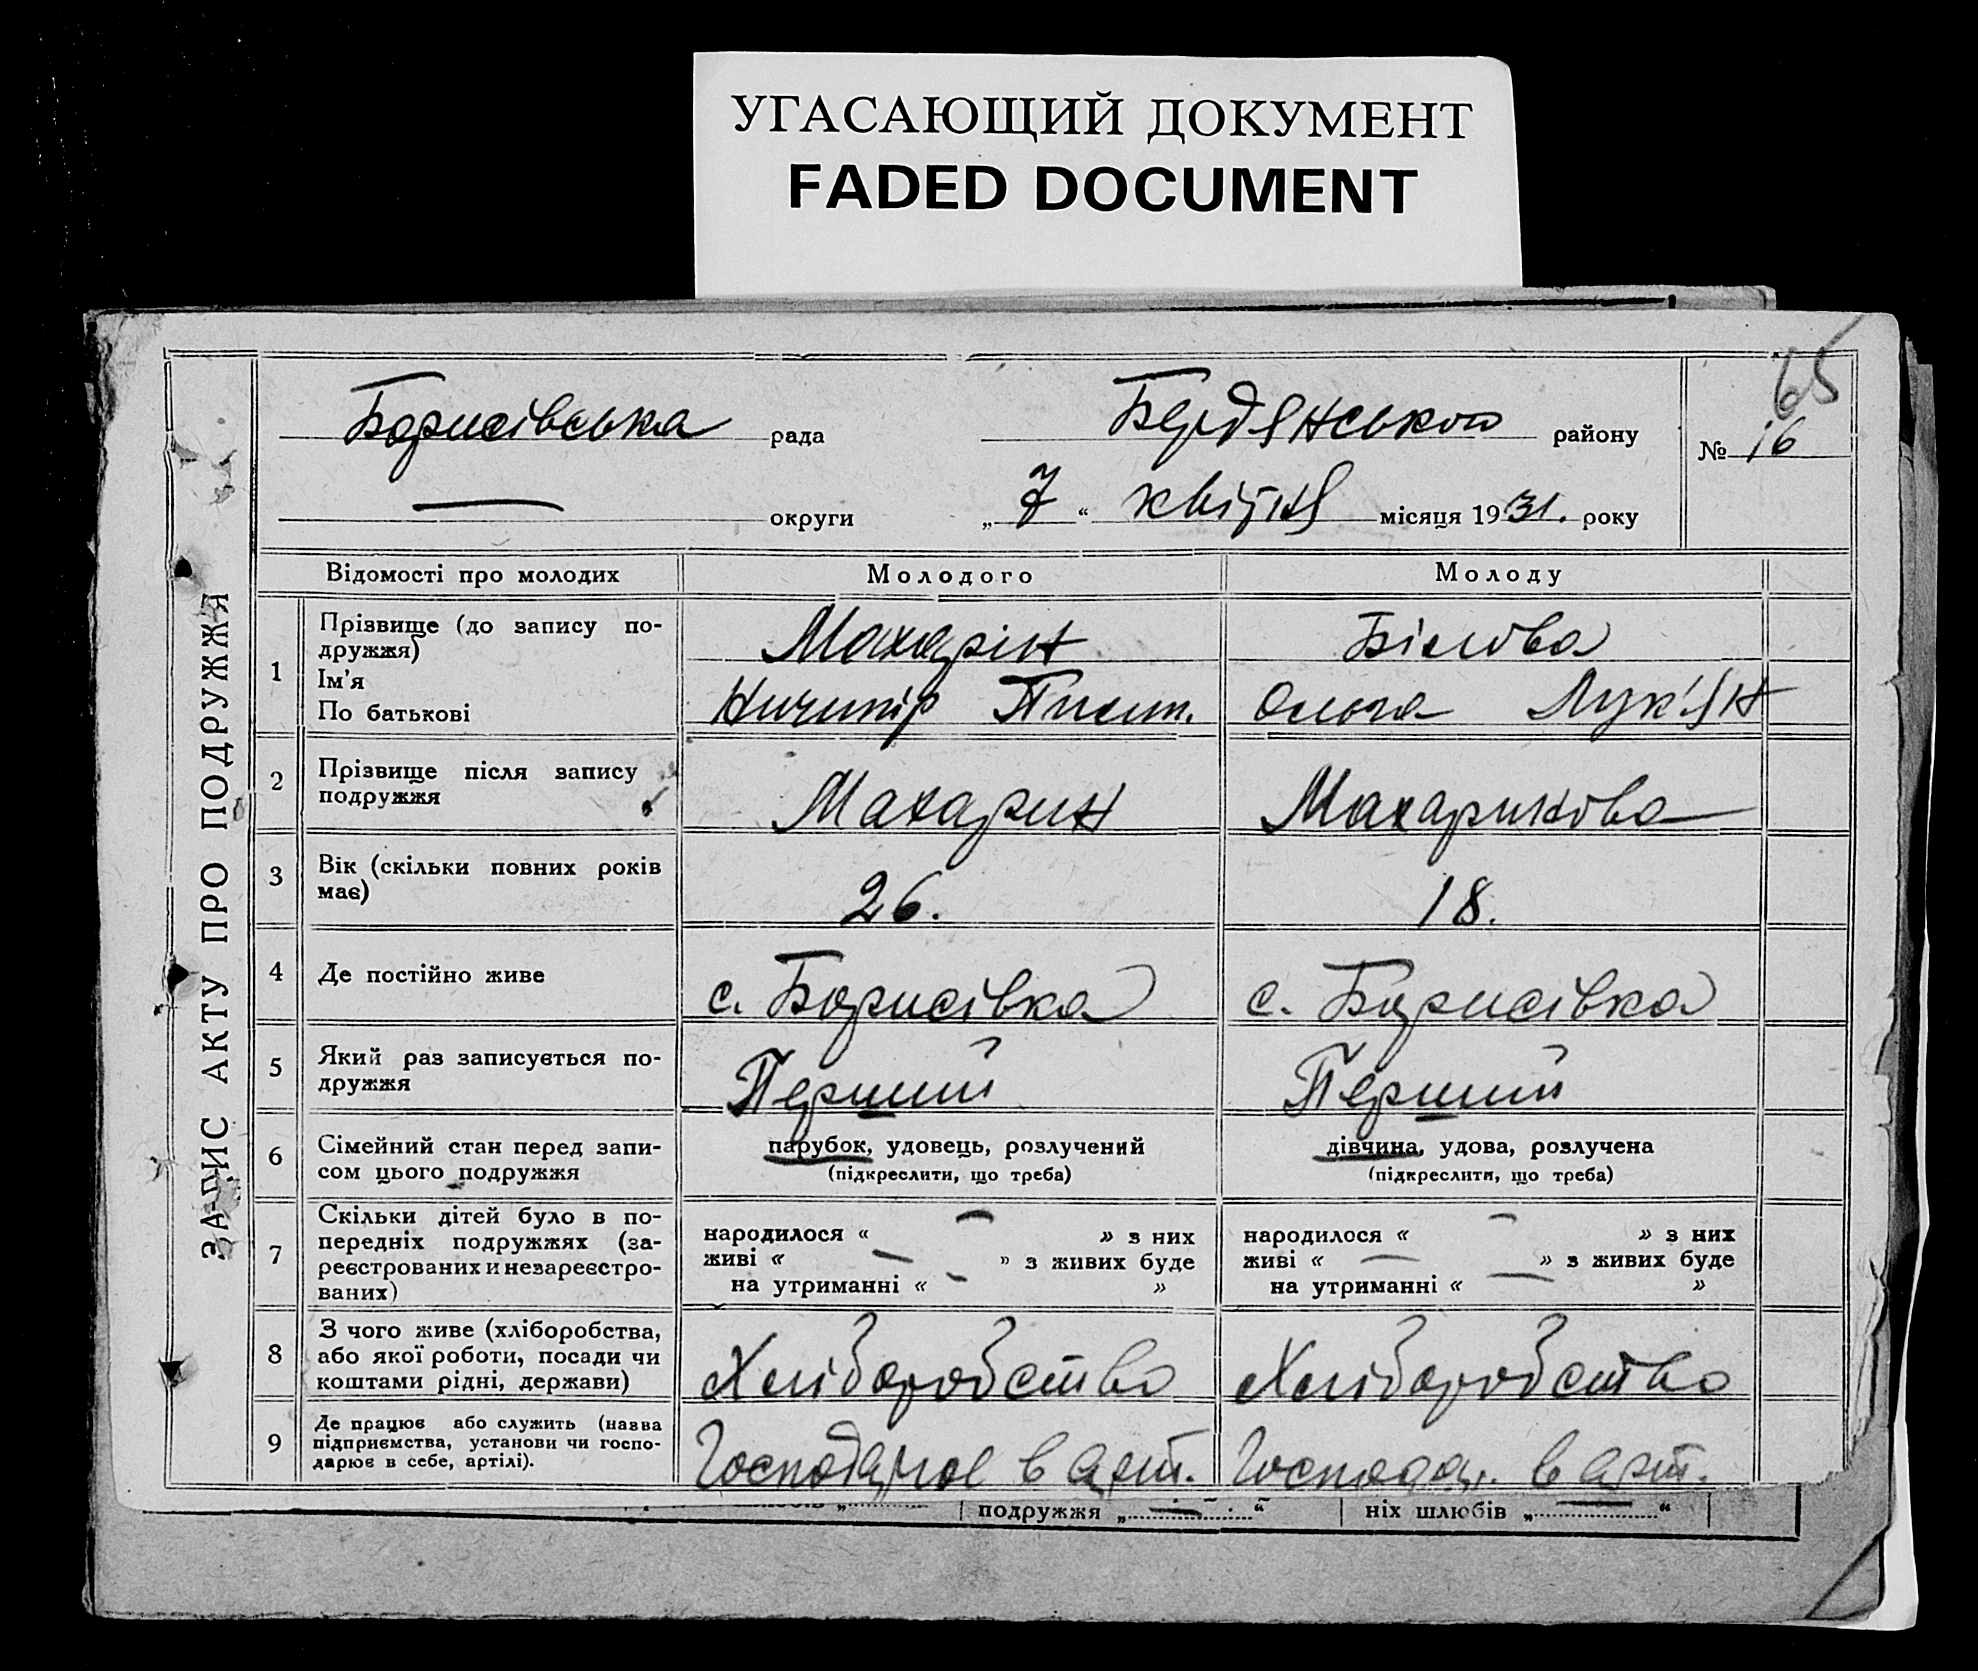 УГАСАЮЩИЙ ДОКУМЕНТ
FADED DOCUMENT
65
ЗАПИС АКТУ ПРО ПОДРУЖЖЯ
Борисівська рада Бердянського району № 16
— округи „ 7 “ квітня місяця 1931. року
Відомості про молодих Молодого Молоду
1 Прізвище (до запису по-
дружжя) Махарін Білова
Ім'я
По батькові Ничипір Пилип. Ольга Лук'ян
2 Прізвище після запису
подружжя Махарин Махаринова
3 Вік (скільки повних років
має) 26. 18.
4 Де постійно живе с. Борисівка с. Борисівка
5 Який раз записується по-
дружжя Перший Перший
6 Сімейний стан перед запи-
сом цього подружжя
парубок, удовець, розлучений
(підкреслити, що треба)
дівчина, удова, розлучена
(підкреслити, що треба)
7 Скільки дітей було в по-
передніх подружжях (за-
реєстрованих и незареєстро-
ваних)
народилося « — » з них
живі « — » з живих буде
на утриманні « — »
народилося « — » з них
живі « — » з живих буде
на утриманні « — »
8 З чого живе (хліборобства,
або якої роботи, посади чи
коштами рідні, держави)
Хліборобство Хліборобство
9 Де працює або служить (назва
підприємства, установи чи госпо-
дарює в себе, артілі).
Господарює в арт. Господар. в арт.
подружжя „ — “ ніх шлюбів „ — “